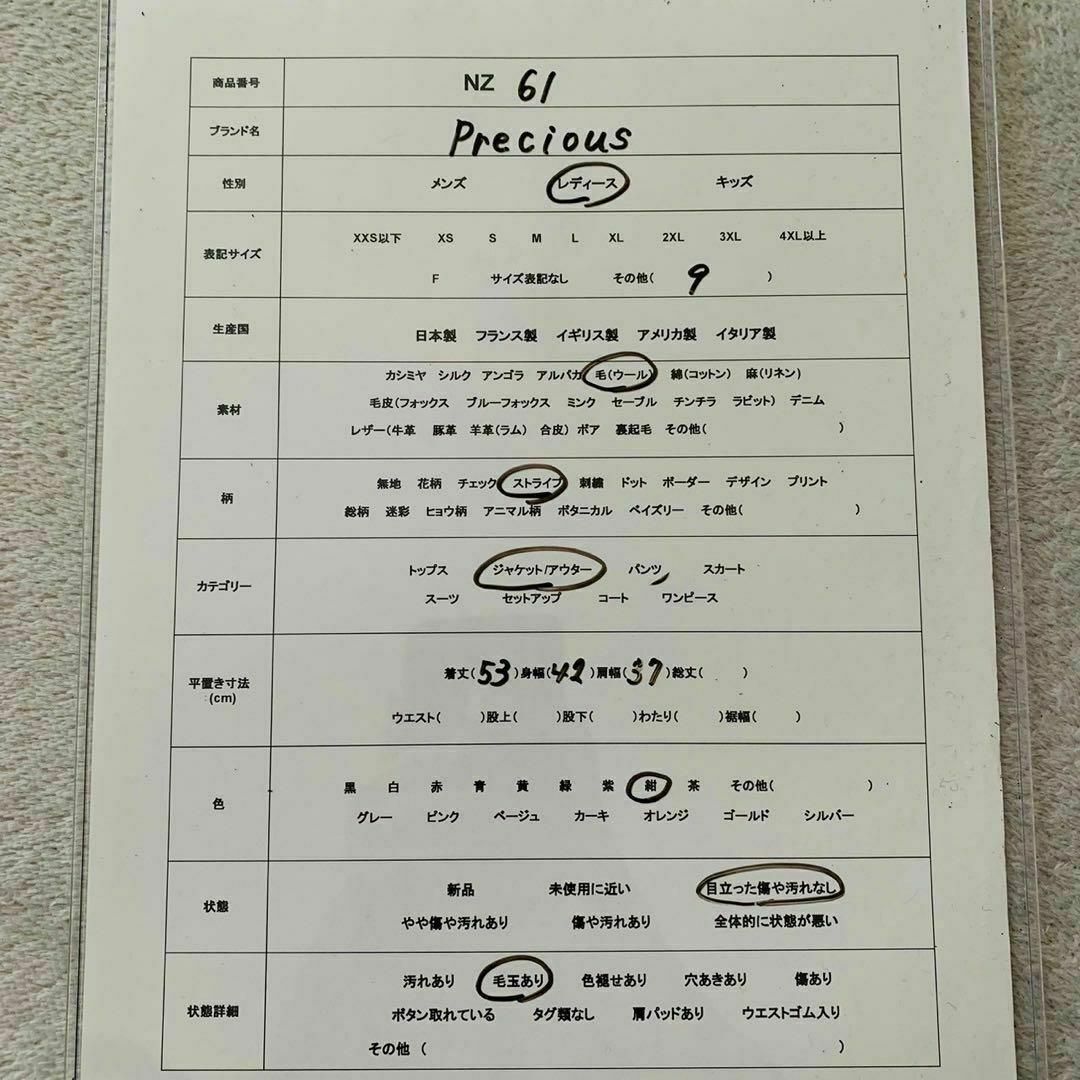 商品番号 NZ 61
ブランド名 Precious
性別 メンズ レディース キッズ
表記サイズ
XXS以下 XS S M L XL 2XL 3XL 4XL以上
F サイズ表記なし その他( 9 )
生産国 日本製 フランス製 イギリス製 アメリカ製 イタリア製
素材
カシミヤ シルク アンゴラ アルパカ 毛(ウール) 綿(コットン) 麻(リネン)
毛皮(フォックス ブルーフォックス ミンク セーブル チンチラ ラビット) デニム
レザー(牛革 豚革 羊革(ラム) 合皮) ボア 裏起毛 その他( )
柄
無地 花柄 チェック ストライプ 刺繍 ドット ボーダー デザイン プリント
総柄 迷彩 ヒョウ柄 アニマル柄 ボタニカル ペイズリー その他( )
カテゴリー
トップス ジャケット/アウター パンツ スカート
スーツ セットアップ コート ワンピース
平置き寸法
(cm)
着丈(53)身幅(42)肩幅(37)総丈( )
ウエスト( )股上( )股下( )わたり( )裾幅( )
色
黒 白 赤 青 黄 緑 紫 紺 茶 その他( )
グレー ピンク ベージュ カーキ オレンジ ゴールド シルバー
状態
新品 未使用に近い 目立った傷や汚れなし
やや傷や汚れあり 傷や汚れあり 全体的に状態が悪い
状態詳細
汚れあり 毛玉あり 色褪せあり 穴あきあり 傷あり
ボタン取れている タグ類なし 肩パッドあり ウエストゴム入り
その他 ( )